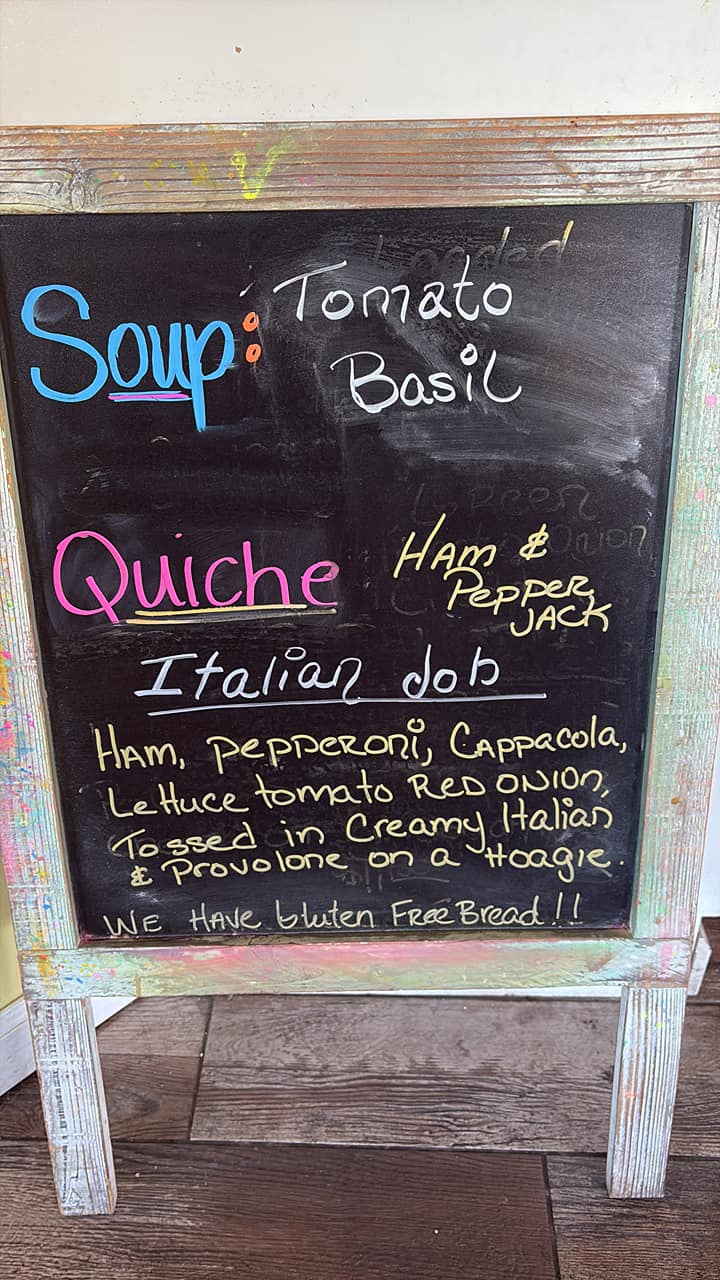 Loaded
Soup: Tomato
Basil
Green
Onion
Quiche Ham &
Pepper
JACK
Italian Job
Ham, pepperoni, Cappacola,
Lettuce tomato Red onion,
Tossed in Creamy Italian
& Provolone on a Hoagie.
We Have Gluten Free Bread!!